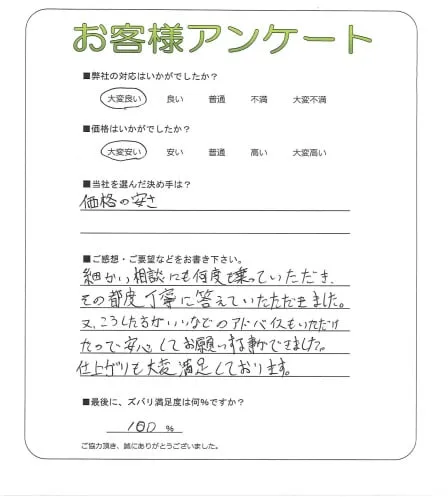 お客様アンケート
■弊社の対応はいかがでしたか？
大変良い 良い 普通 不満 大変不満
■価格はいかがでしたか？
大変安い 安い 普通 高い 大変高い
■当社を選んだ決め手は？
価格の安さ
■ご感想・ご要望などをお書き下さい。
細かい相談にも何度も乗っていただき、
その都度丁寧に答えていたただきました。
又、こうした方がいいなどのアドバイスもいただけ
たので安心してお願いする事ができました。
仕上がりも大変満足しております。
■最後に、ズバリ満足度は何%ですか？
100 %
ご協力頂き、誠にありがとうございました。